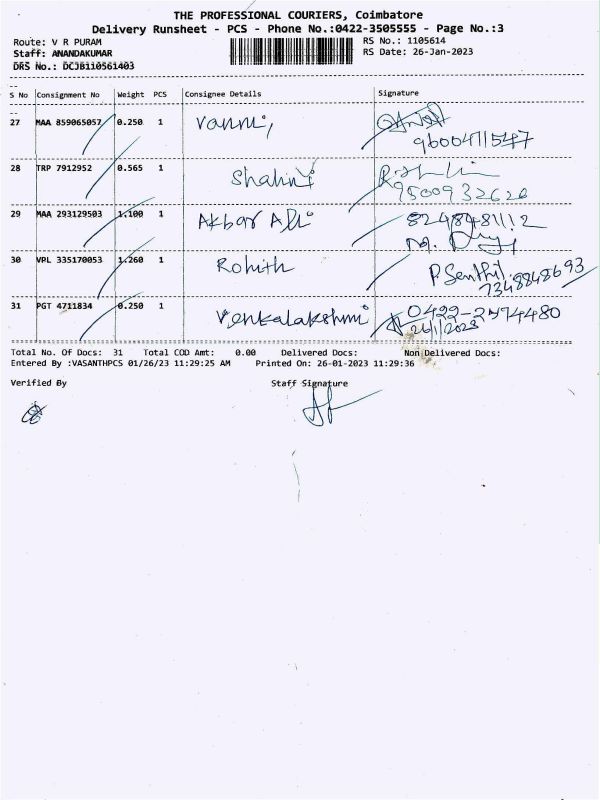 THE PROFESSIONAL COURIERS, Coimbatore
Delivery Runsheet - PCS - Phone No.:0422-3505555 - Page No.:3
Route: V R PURAM
RS No.: 1105614
Staff: ANANDAKUMAR
RS Date: 26-Jan-2023
DRS No.: DCJB110561403
S No Consignment No Weight PCS Consignee Details Signature
27 MAA 859065057 0.250 1 Vanni,
9600471547
28 TRP 7912952 0.565 1 Shalini
9500932626
29 MAA 293129503 1.100 1 Akbar Ali 8248481112
30 VPL 335170053 1.260 1 Rohith P. Senthil.
7348848693
31 PGT 4711834 0.250 1 Venkalakshmi 0422-2574480
26/1/2023
Total No. Of Docs: 31 Total COD Amt: 0.00 Delivered Docs: Non Delivered Docs:
Entered By :VASANTHPCS 01/26/23 11:29:25 AM Printed On: 26-01-2023 11:29:36
Verified By Staff Signature